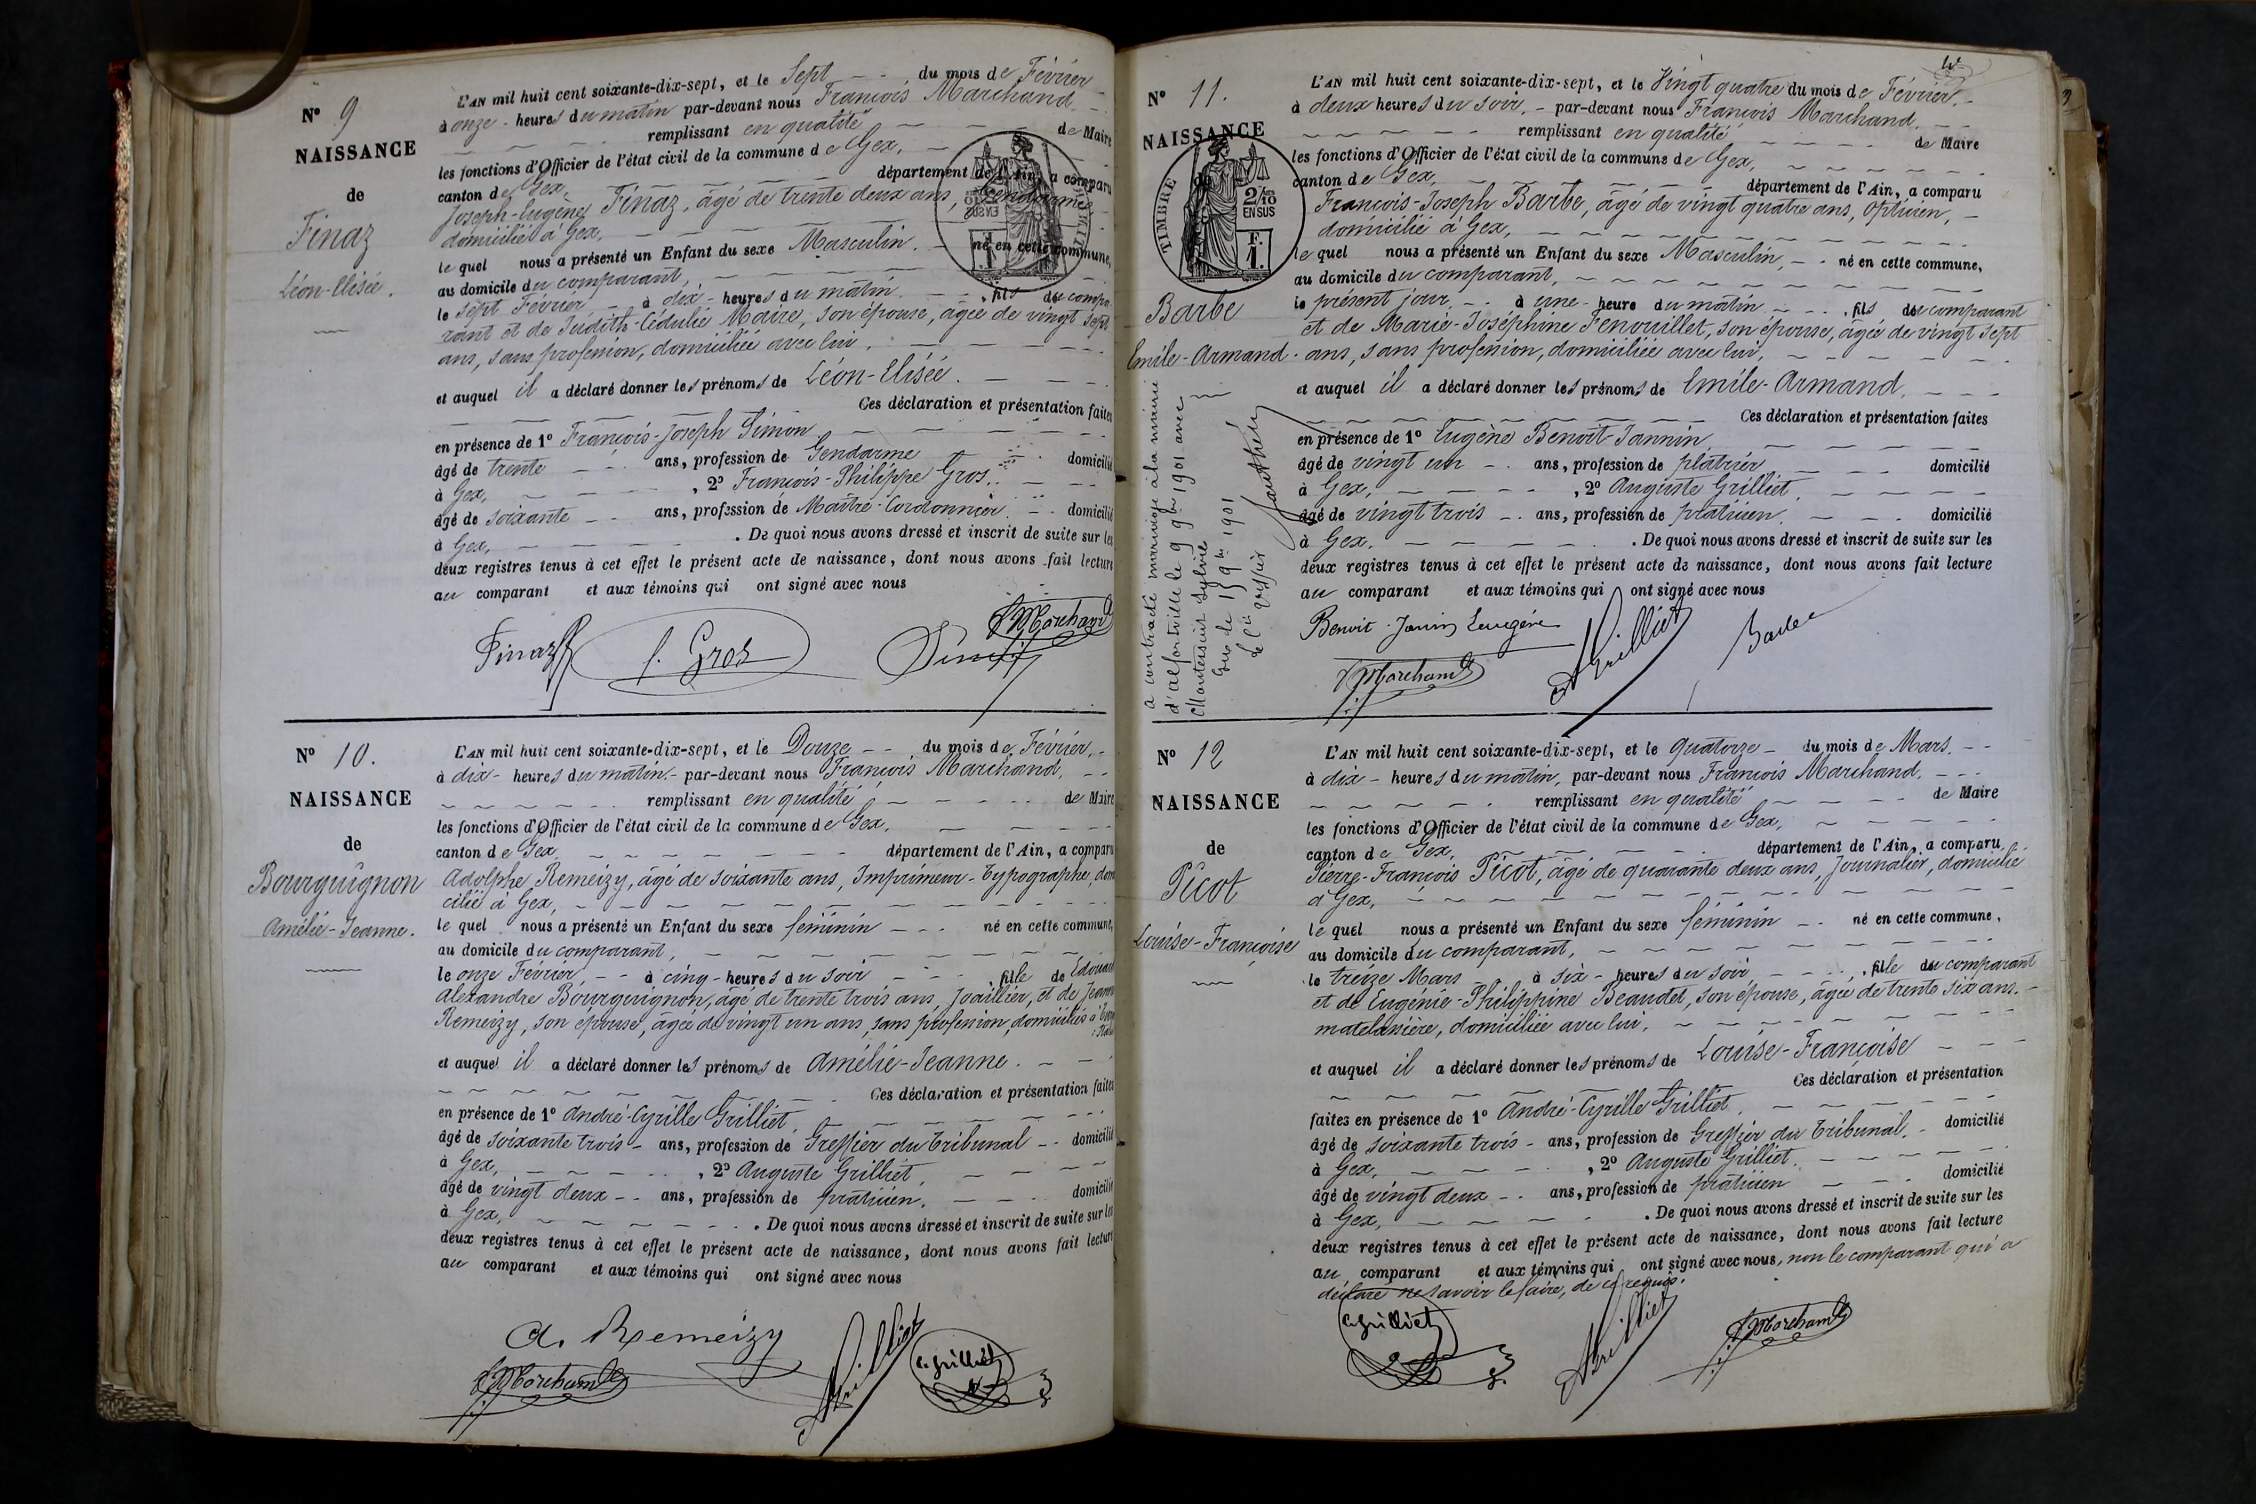 N° 9
NAISSANCE
de
Finaz
Léon-Elisée.
L'AN mil huit cent soixante-dix-sept, et le Sept du mois de Février
à onze heures du matin par-devant nous François Marchand
remplissant en qualité de Maire
les fonctions d'Officier de l'état civil de la commune de Gex,
canton de Gex, département de l'Ain, a comparu
Joseph-Eugène Finaz, âgé de trente deux ans, Gendarme,
domicilié à Gex,
le quel nous a présenté un Enfant du sexe Masculin. né en cette commune,
au domicile du comparant,
le sept Février à dix heures du matin, fils du compa-
rant et de Judith-Cédulie Maire, son épouse, âgée de vingt sept
ans, sans profession, domiciliée avec lui,
et auquel il a déclaré donner les prénoms de Léon-Elisée.
Ces déclaration et présentation faites
en présence de 1° François-Joseph Simon
âgé de trente ans, profession de Gendarme domicilié
à Gex, , 2° François-Philippe Gros,
âgé de soixante ans, profession de Maître-Cordonnier domicilié
à Gex, . De quoi nous avons dressé et inscrit de suite sur les
deux registres tenus à cet effet le présent acte de naissance, dont nous avons fait lecture
au comparant et aux témoins qui ont signé avec nous
Finaz f. Gros Simon F Marchand
N° 10.
NAISSANCE
de
Bourguignon
Amélie-Jeanne.
L'AN mil huit cent soixante-dix-sept, et le Douze du mois de Février,
à dix heures du matin par-devant nous François Marchand,
remplissant en qualité de Maire
les fonctions d'Officier de l'état civil de la commune de Gex,
canton de Gex département de l'Ain, a comparu
Adolphe Remeizy, âgé de soixante ans, Imprimeur-Typographe, domi
cilié à Gex,
le quel nous a présenté un Enfant du sexe féminin né en cette commune,
au domicile du comparant,
le onze Février à cinq heures du soir fille de Edouard
Alexandre Bourguignon, âgé de trente trois ans, Joaillier, et de Jeanne
Remeizy, son épouse, âgée de vingt un ans, sans profession, domiciliés à
et auquel il a déclaré donner les prénoms de Amélie-Jeanne.
Ces déclaration et présentation faites
en présence de 1° André-Cyrille Grilliet,
âgé de soixante trois ans, profession de Greffier du Tribunal domicilié
à Gex, , 2° Auguste Grilliet,
âgé de vingt deux ans, profession de praticien, domicilié
à Gex, . De quoi nous avons dressé et inscrit de suite sur les
deux registres tenus à cet effet le présent acte de naissance, dont nous avons fait lecture
au comparant et aux témoins qui ont signé avec nous
A. Remeizy
F Marchand A Grilliet C. Grilliet
N° 11.
NAISSANCE
de
TIMBRE
2/10 EN SUS
F. 1.
Barbe
Emile-Armand.
a contracté mariage à la mairie
d'Alfortville le 9 9bre 1901 avec
Sylvie
Gex le 15 9bre 1901
le Cis greffier
L'AN mil huit cent soixante-dix-sept, et le Vingt quatre du mois de Février.
à deux heures du soir, par-devant nous François Marchand,
remplissant en qualité de Maire
les fonctions d'Officier de l'état civil de la commune de Gex,
canton de Gex, département de l'Ain, a comparu
François-Joseph Barbe, âgé de vingt quatre ans, Opticien,
domicilié à Gex,
le quel nous a présenté un Enfant du sexe Masculin, né en cette commune,
au domicile du comparant,
le présent jour à une heure du matin, fils du comparant
et de Marie-Joséphine Fenouillet, son épouse, âgée de vingt sept
ans, sans profession, domiciliée avec lui,
et auquel il a déclaré donner les prénoms de Emile-Armand
Ces déclaration et présentation faites
en présence de 1° Eugène Benoit-Jannin
âgé de vingt un ans, profession de plâtrier domicilié
à Gex, , 2° Auguste Grilliet,
âgé de vingt trois ans, profession de praticien, domicilié
à Gex, . De quoi nous avons dressé et inscrit de suite sur les
deux registres tenus à cet effet le présent acte de naissance, dont nous avons fait lecture
au comparant et aux témoins qui ont signé avec nous
Benoit-Janin Eugéne A Grilliet Barbe
F Marchand
N° 12
NAISSANCE
de
Picot
Louise-Françoise
L'AN mil huit cent soixante-dix-sept, et le quatorze du mois de Mars.
à dix heures du matin, par-devant nous François Marchand,
remplissant en qualité de Maire
les fonctions d'Officier de l'état civil de la commune de Gex,
canton de Gex, département de l'Ain, a comparu
Pierre-François Picot, âgé de quarante deux ans, Journalier, domicilié
à Gex,
le quel nous a présenté un Enfant du sexe féminin né en cette commune,
au domicile du comparant,
le treize Mars à six heures du soir, fille du comparant
et de Eugénie-Philippine Beaudet, son épouse, âgée de trente six ans,
matelassière, domiciliée avec lui,
et auquel il a déclaré donner les prénoms de Louise-Françoise
Ces déclaration et présentation
faites en présence de 1° André-Cyrille Grilliet,
âgé de soixante trois ans, profession de Greffier du Tribunal. domicilié
à Gex, , 2° Auguste Grilliet,
âgé de vingt deux ans, profession de praticien domicilié
à Gex, . De quoi nous avons dressé et inscrit de suite sur les
deux registres tenus à cet effet le présent acte de naissance, dont nous avons fait lecture
au comparant et aux témoins qui ont signé avec nous, non le comparant qui a
déclaré ne savoir le faire, de ce requis.
C. Grilliet A Grilliet F Marchand